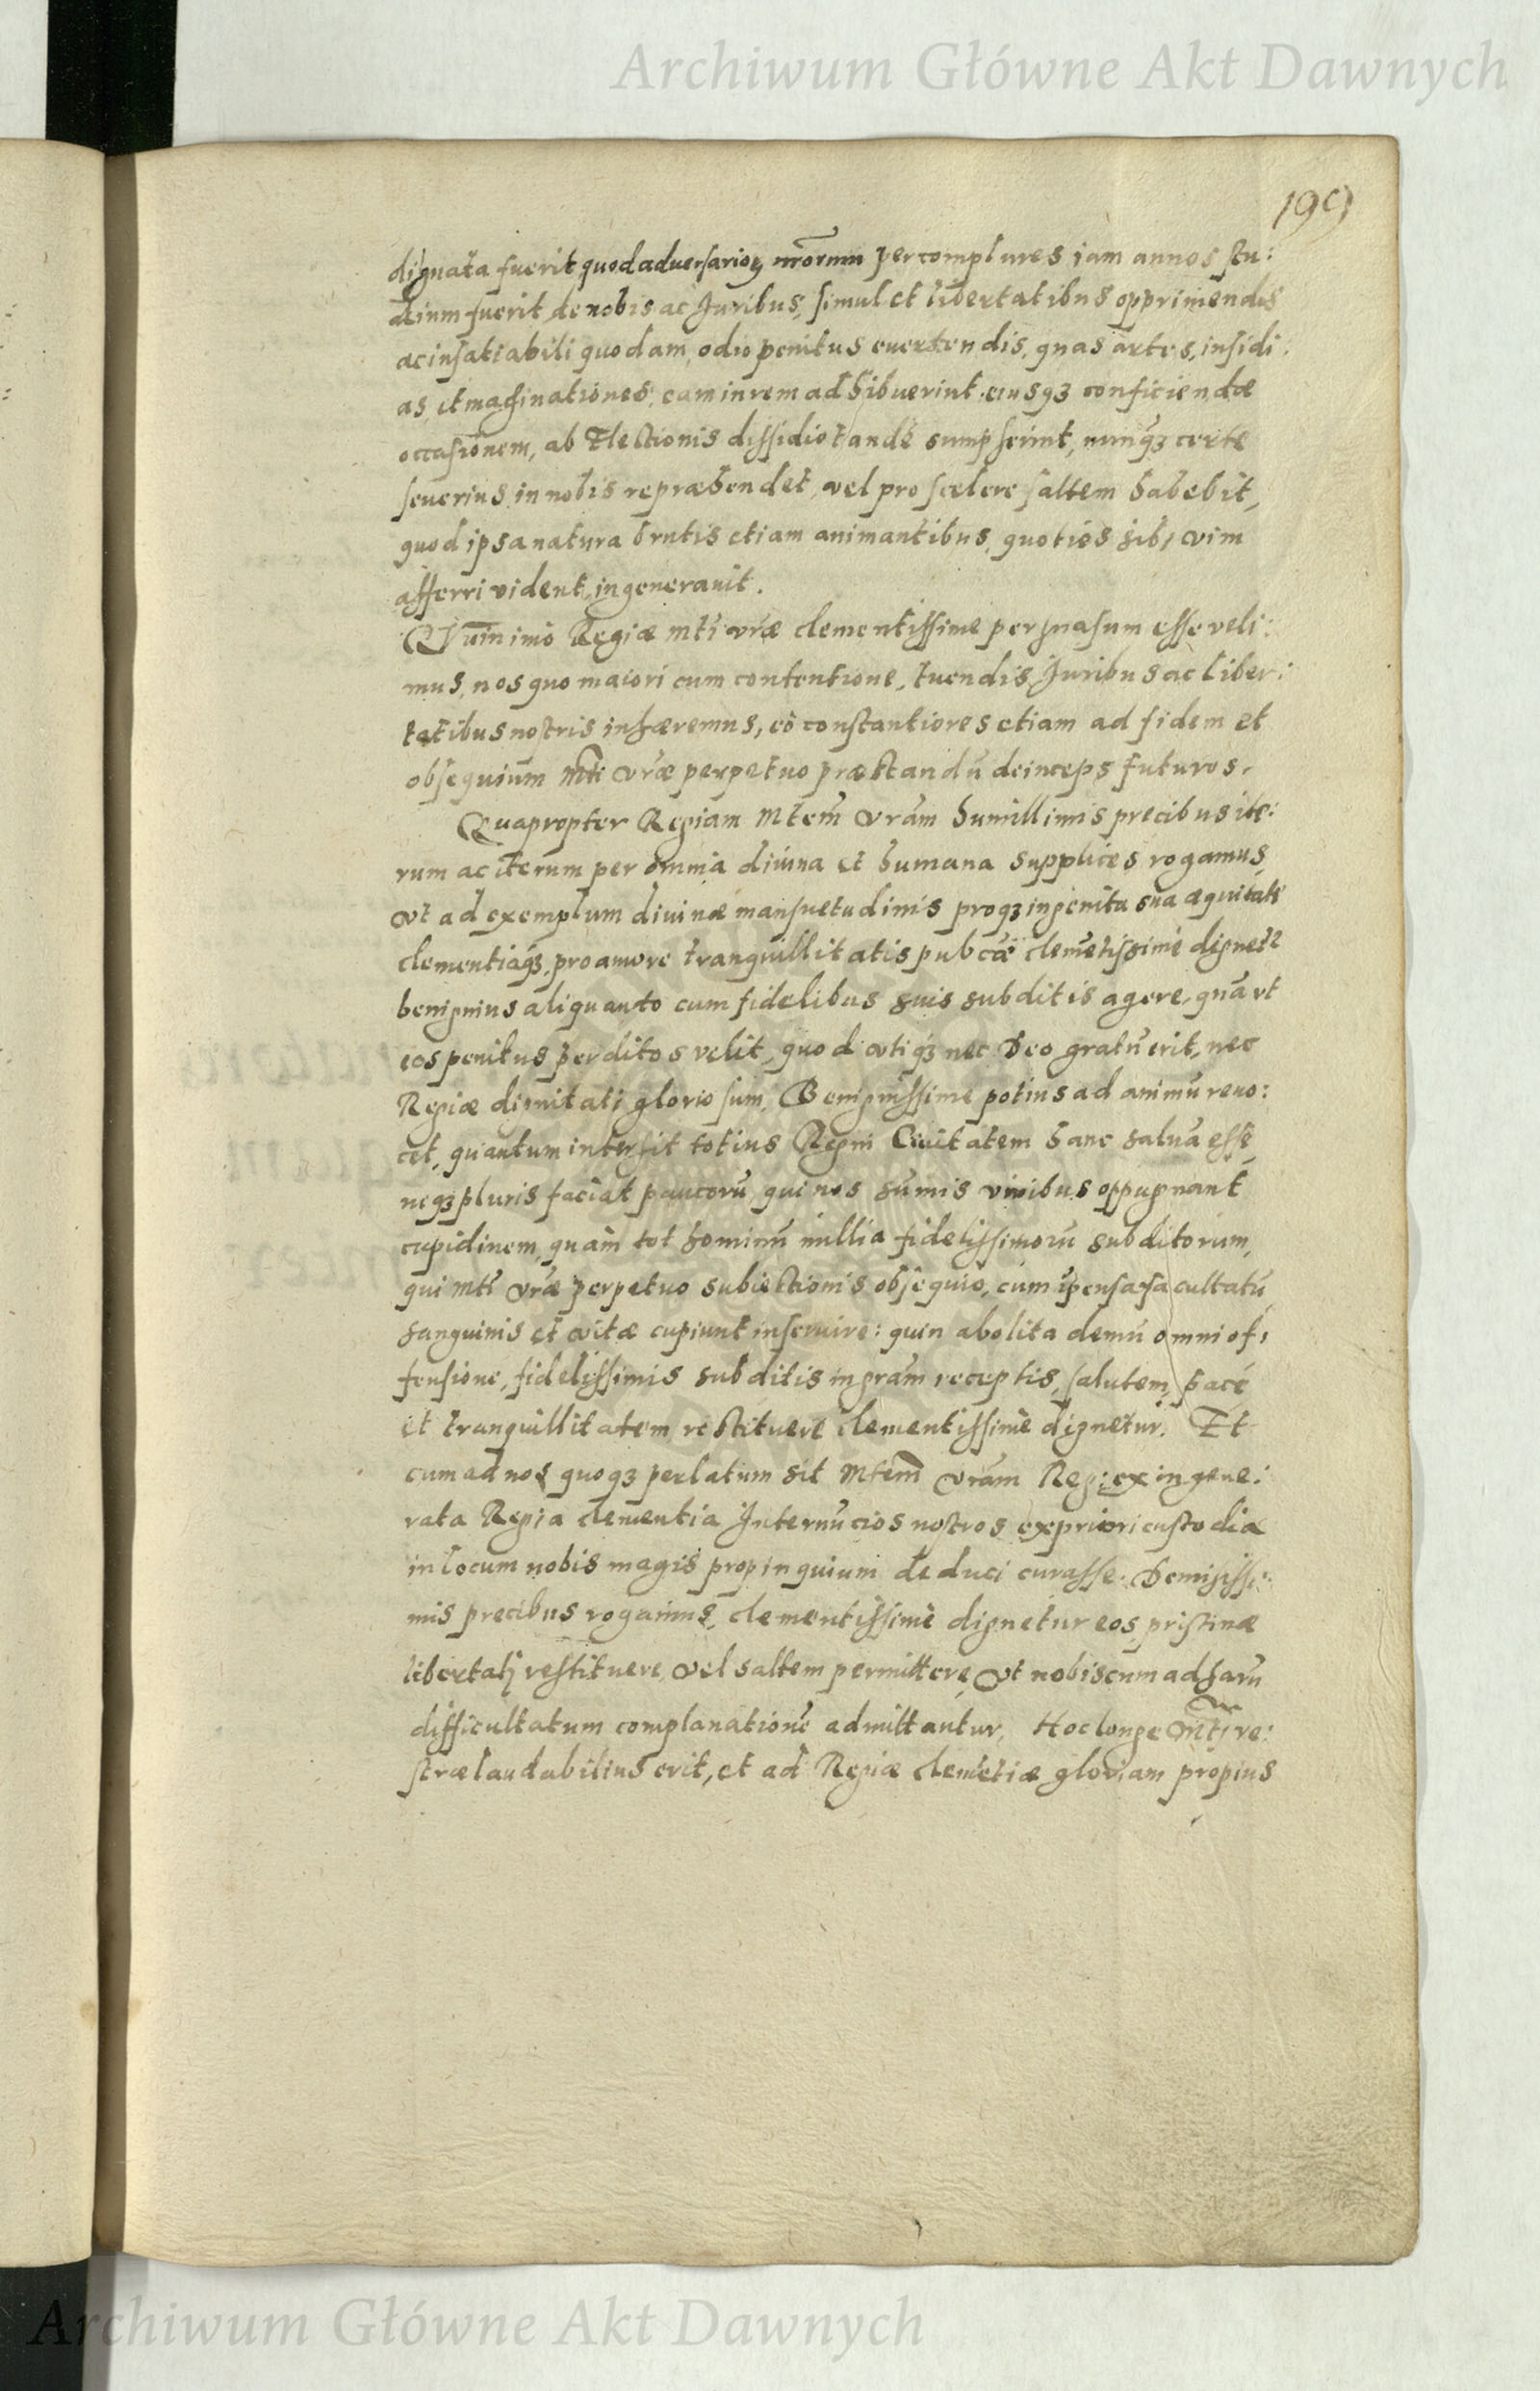 Archiwum Główne Akt Dawnych
199
dignata fuerit quod adversarioꝝ nrorum per complures iam annos stu:
dium fuerit de nobis ac Juribus, simul et libertatibus opprimendis
ac insatiabili quodam, odio penitus evertendis, quas artes, insidi:
as, et maginationes, eam in rem adhibuerint, eiusqʒ conficiendæ
occasionem, ab Electionis dissidio tandē sumpserint, nunqʒ certe
severius in nobis repræhendet, vel pro scelere saltem habebit,
quod ipsa natura brutis etiam animantibus, quoties sibi vim
afferri vident, ingeneravit.
Quin imo Regiæ Mti vræ clementissime persuasum esse veli:
mus, nos quo maiori cum contentione, tuendis Juribus ac liber:
tatibus nostris inhæremus, eò constantiores etiam ad fidem et
obsequium Mti vræ perpetuo præstandū deinceps futuros.
Quapropter Regiam Mtem vram humillimis precibus ite:
rum ac iterum per omnia divina et humana supplices rogamus,
vt ad exemplum divinæ mansuetudinis proqʒ ingenita sua æquitate
clementiaqʒ, pro amore tranquillitatis pubcæ clemētissimè dignetr
benignius aliquanto cum fidelibus suis subditis agere, quā vt
eos penitus perditos velit, quod vtiqʒ nec Deo gratū erit, nec
Regiæ dignitati gloriosum, Benignissime potius ad animū revo:
cet, quantum intersit totius Regni Civitatem hanc salvā esse,
neqʒ pluris faciat paucorū, qui nos sūmis viribus oppugnant
cupidinem, quàm tot hominū millia fidelissimorū subditorum,
qui Mti vræ perpetuo subiectionis obsequio, cum īpensa facultatū,
sanguinis et vitæ cupiunt inservire: quin abolita demū omni of:
fensione, fidelissimis subditis in gram receptis, salutem, pacē
et tranquillitatem restituere clementissimè dignetur. Et
cum ad nos quoqʒ perlatum sit Mtem vram Reg: ex ingene:
rata Regia clementia Internūcios nostros ex priori custodia
in locum nobis magis propinquium deduci curasse. Demississi:
mis precibus rogamus, clementissimè dignetur eos pristinæ
libertati restituere, vel saltem permittere, vt nobiscum ad harū
difficultatum complanationē admittantur. Hoc longe Mti ve:
stræ laudabilius erit, et ad Regiæ clemētiæ gloriam propius
Archiwum Główne Akt Dawnych